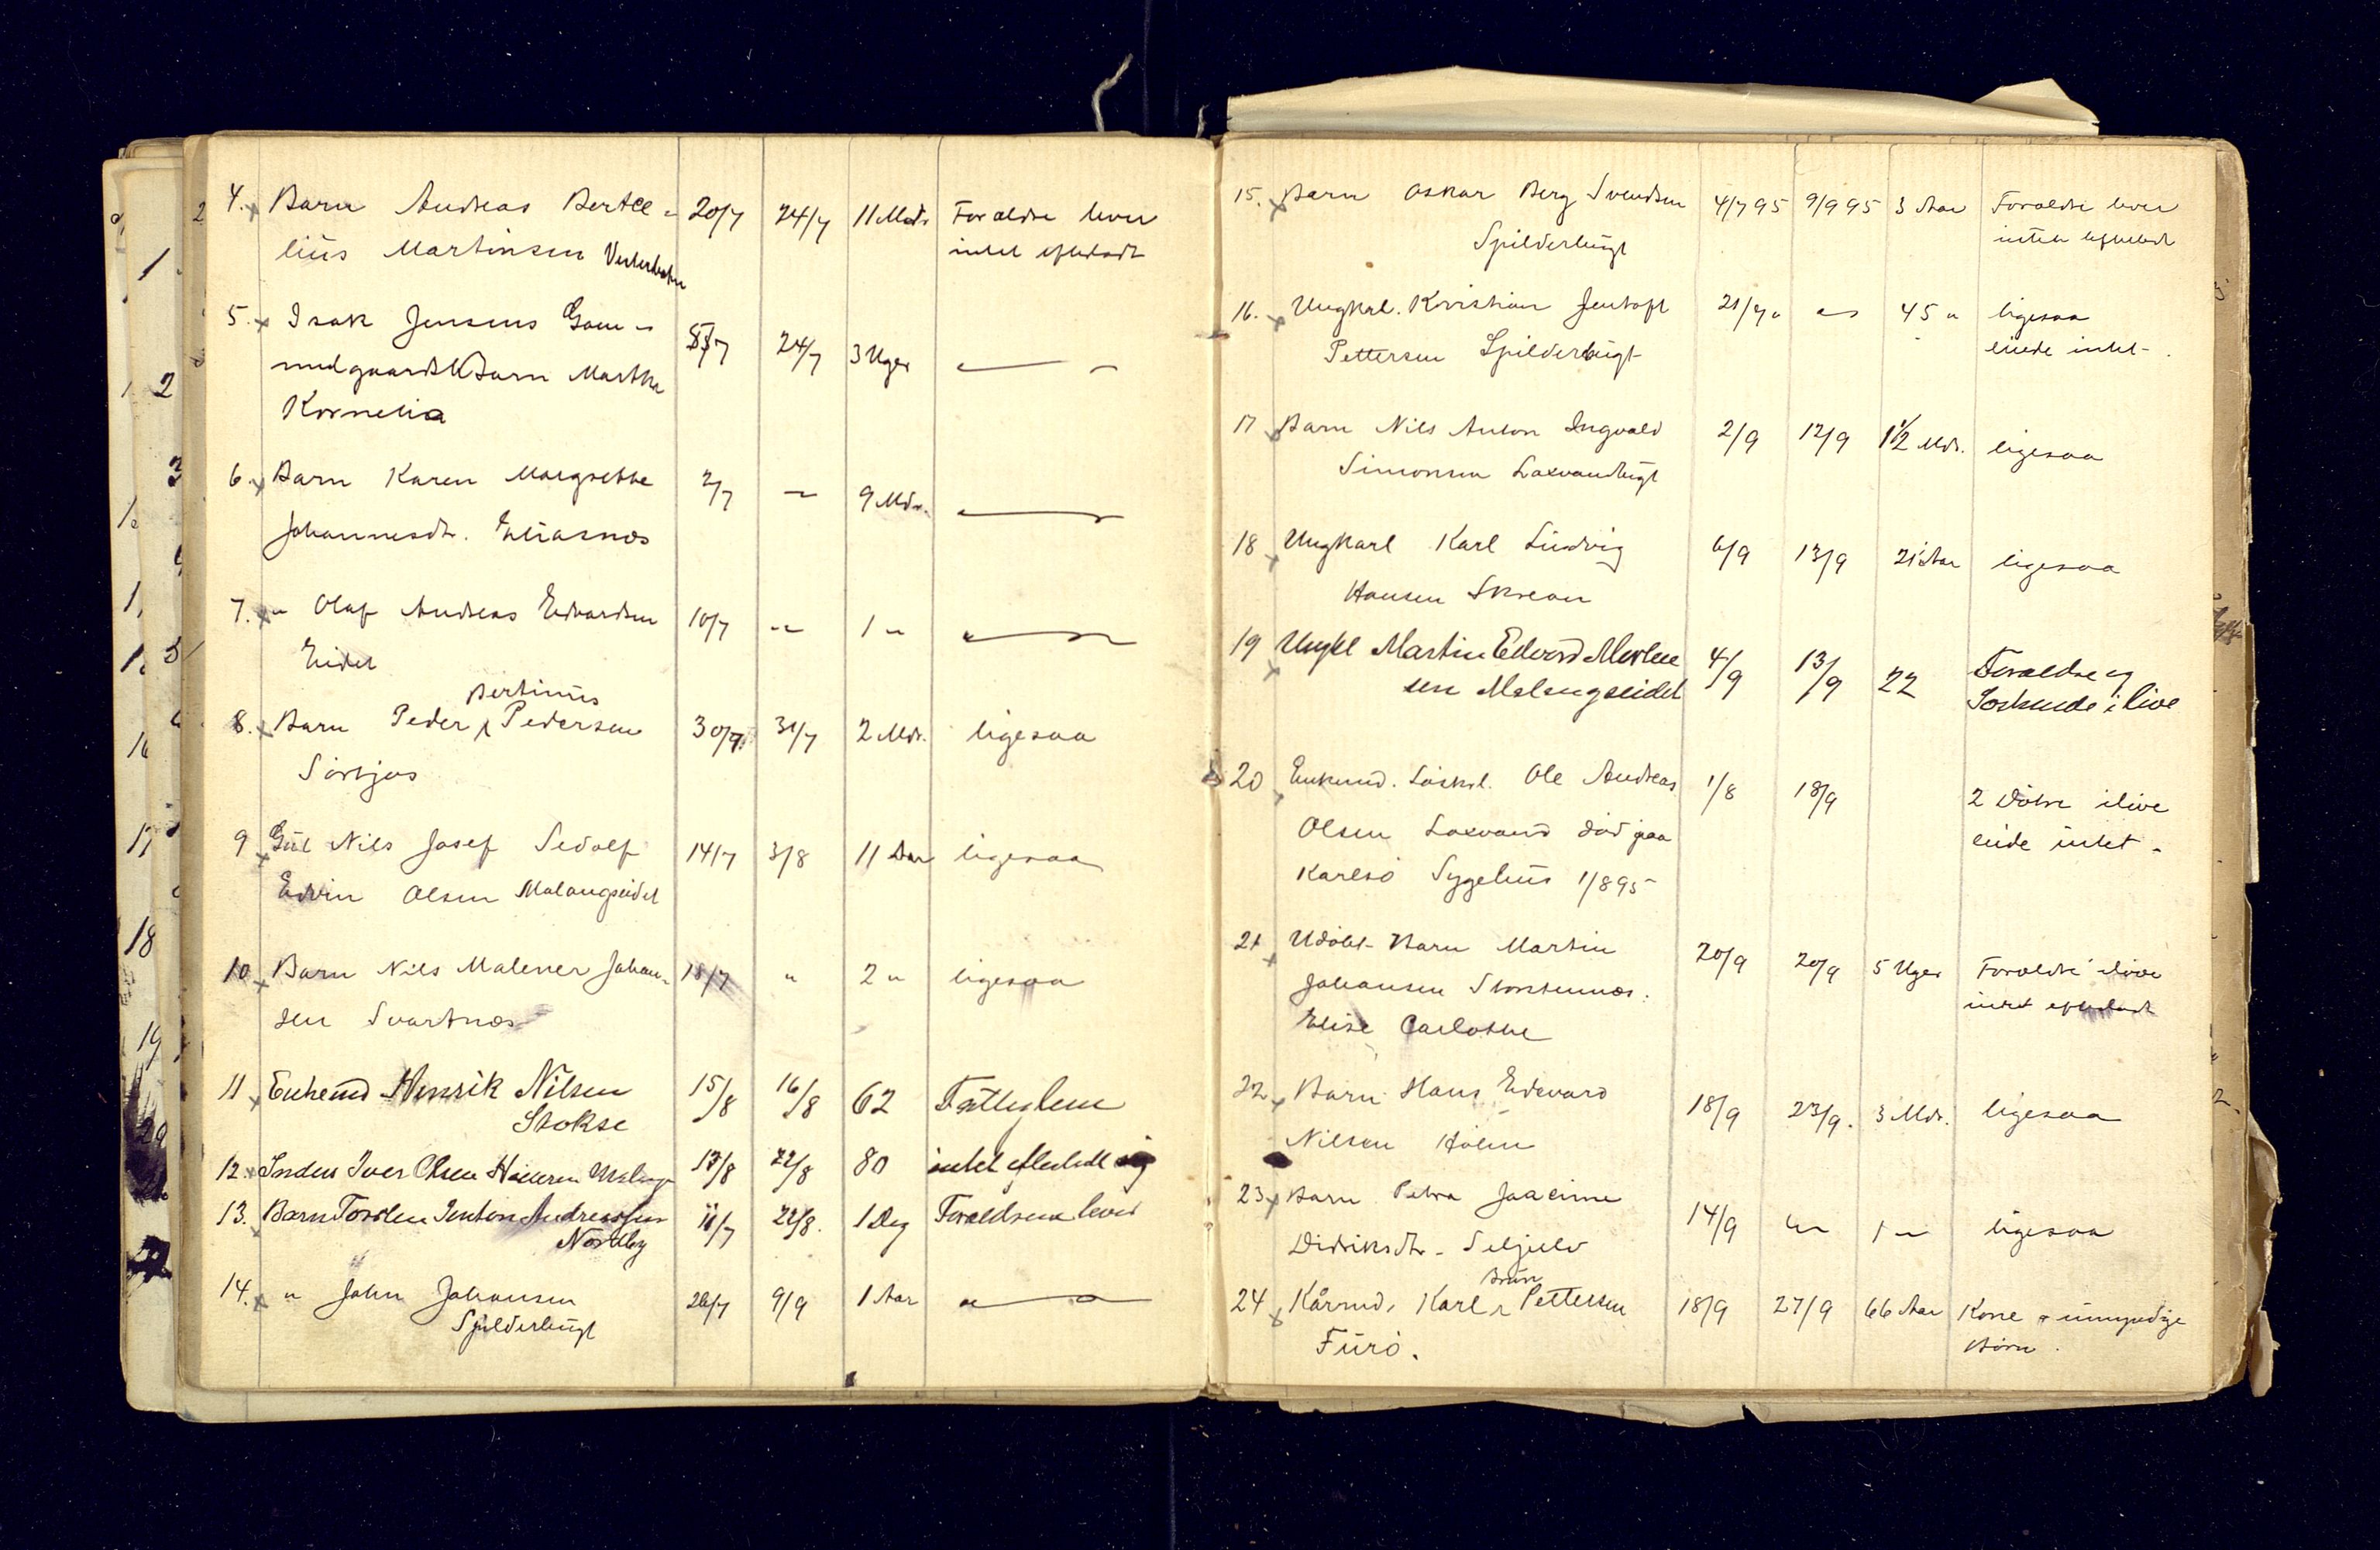 4. Barn Andreas Bertee- 20/7 24/7 11 Mdr Forældre lever
lius Martinsen intet efterladt
5. Isak Jensens Gam- 24/7 3 Uger
Barn Martha
Kornelia
6. Barn Karen Margrethe 2/7 9 Mdr.
Johannesdt. Eliasnes
7. " Olaf Andreas Edvardsen 10/7 " 1 "
Eidet
Bertinus
8. Barn Peder Pedersen 30/7 31/7 2 Mdr. ligesaa
9 Gut Nils Josef Sedolf 14/7 3/8 11 Aar ligesaa
Edvin Olsen Malangseidet
10. Barn Nils Malener Johan- 18/7 " 2 " ligesaa
sen Svartnes
11 Enkemd Henrik Nilsen 15/8 16/8 62 Fattiglem
Stokse
12. Inders Iver Olsen 13/8 22/8 80 intet efterladt sig
13. Barn Jentoft Andreassen 11/7 22/8. 1 Dag Forældrene lever
Nordby
14. " John Johansen 26/7 9/9 1 Aar
Spilderbugt
15. Barn Oskar Berg Svendsen 4/7 95 9/9 95 3 Aar Forældre lever
Spilderbugt intet efterladt
16. Ungkarl. Kristian Jentoft 21/7 " " 45 " ligesaa
Pettersen Spilderbugt eiede intet.
17 Barn Nils Anton Ingvald 2/9 12/9 1½ Mdr. ligesaa
Simonsen Laxvandbugt
18 Ungkarl Karl Ludvig 6/9 13/9 21 Aar ligesaa
Hansen
19 Ungkl Martin Edvard Morten 4/9 13/9 22 Forældre og
sen Malangseidet Søskende i live
20 Enkemd. Løskrl. Ole Andreas 1/8 18/9 2 Døtre ilive
Olsen Laxvand død paa eiede intet.
Karlsø Sygehus 1/8 95
21 Udøbt Barn Martin 20/9 20/9 5 Uger Forældre ilive
Johansen Storstennes. intet efterladt
Elise Carlotte
22. Barn Hans Edevard 18/9 23/9. 3 Mdr. ligesaa
Nilsen Holm
23. Barn Petra Joacime 14/9 " 1 " ligesaa
Didriksdtr. Seljelv
Brun
24 Kårmd. Karl Pettersen 18/9 27/9 66 Aar Kone & umyndige
Furø. Børn.